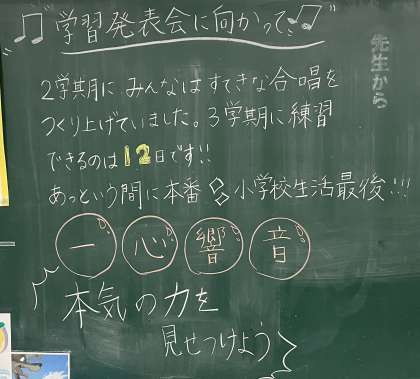 ♫学習発表会に向かって♫
先生から
2学期にみんなはすてきな合唱を
つくり上げていました。3学期に練習
できるのは12日です!!
あっという間に本番 小学校生活最後!!!
一心響音
本気の力を
見せつけよう